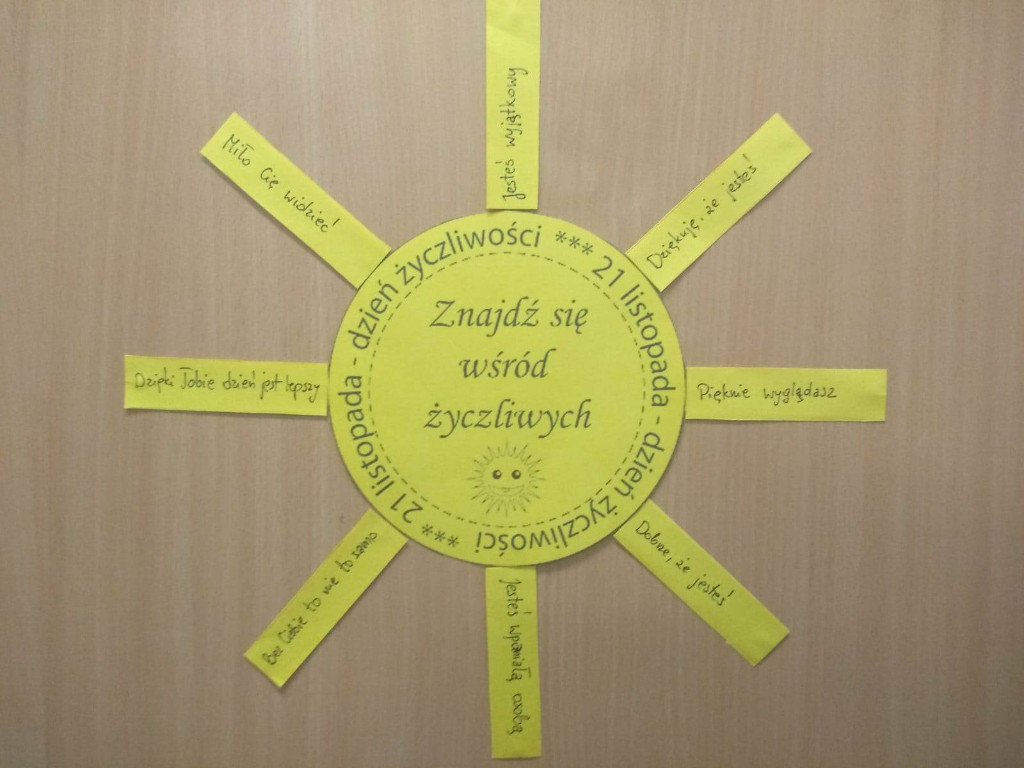 Jesteś wyjątkowy
Dziękuję, że jesteś!
Pięknie wyglądasz
Dobrze, że jesteś!
Jesteś wpaniałą osobą
Bez Ciebie to nie to samo
Dzięki Tobie dzień jest lepszy
Miło Cię widzieć!
21 listopada - dzień życzliwości ***
21 listopada - dzień życzliwości ***
Znajdź się
wśród
życzliwych